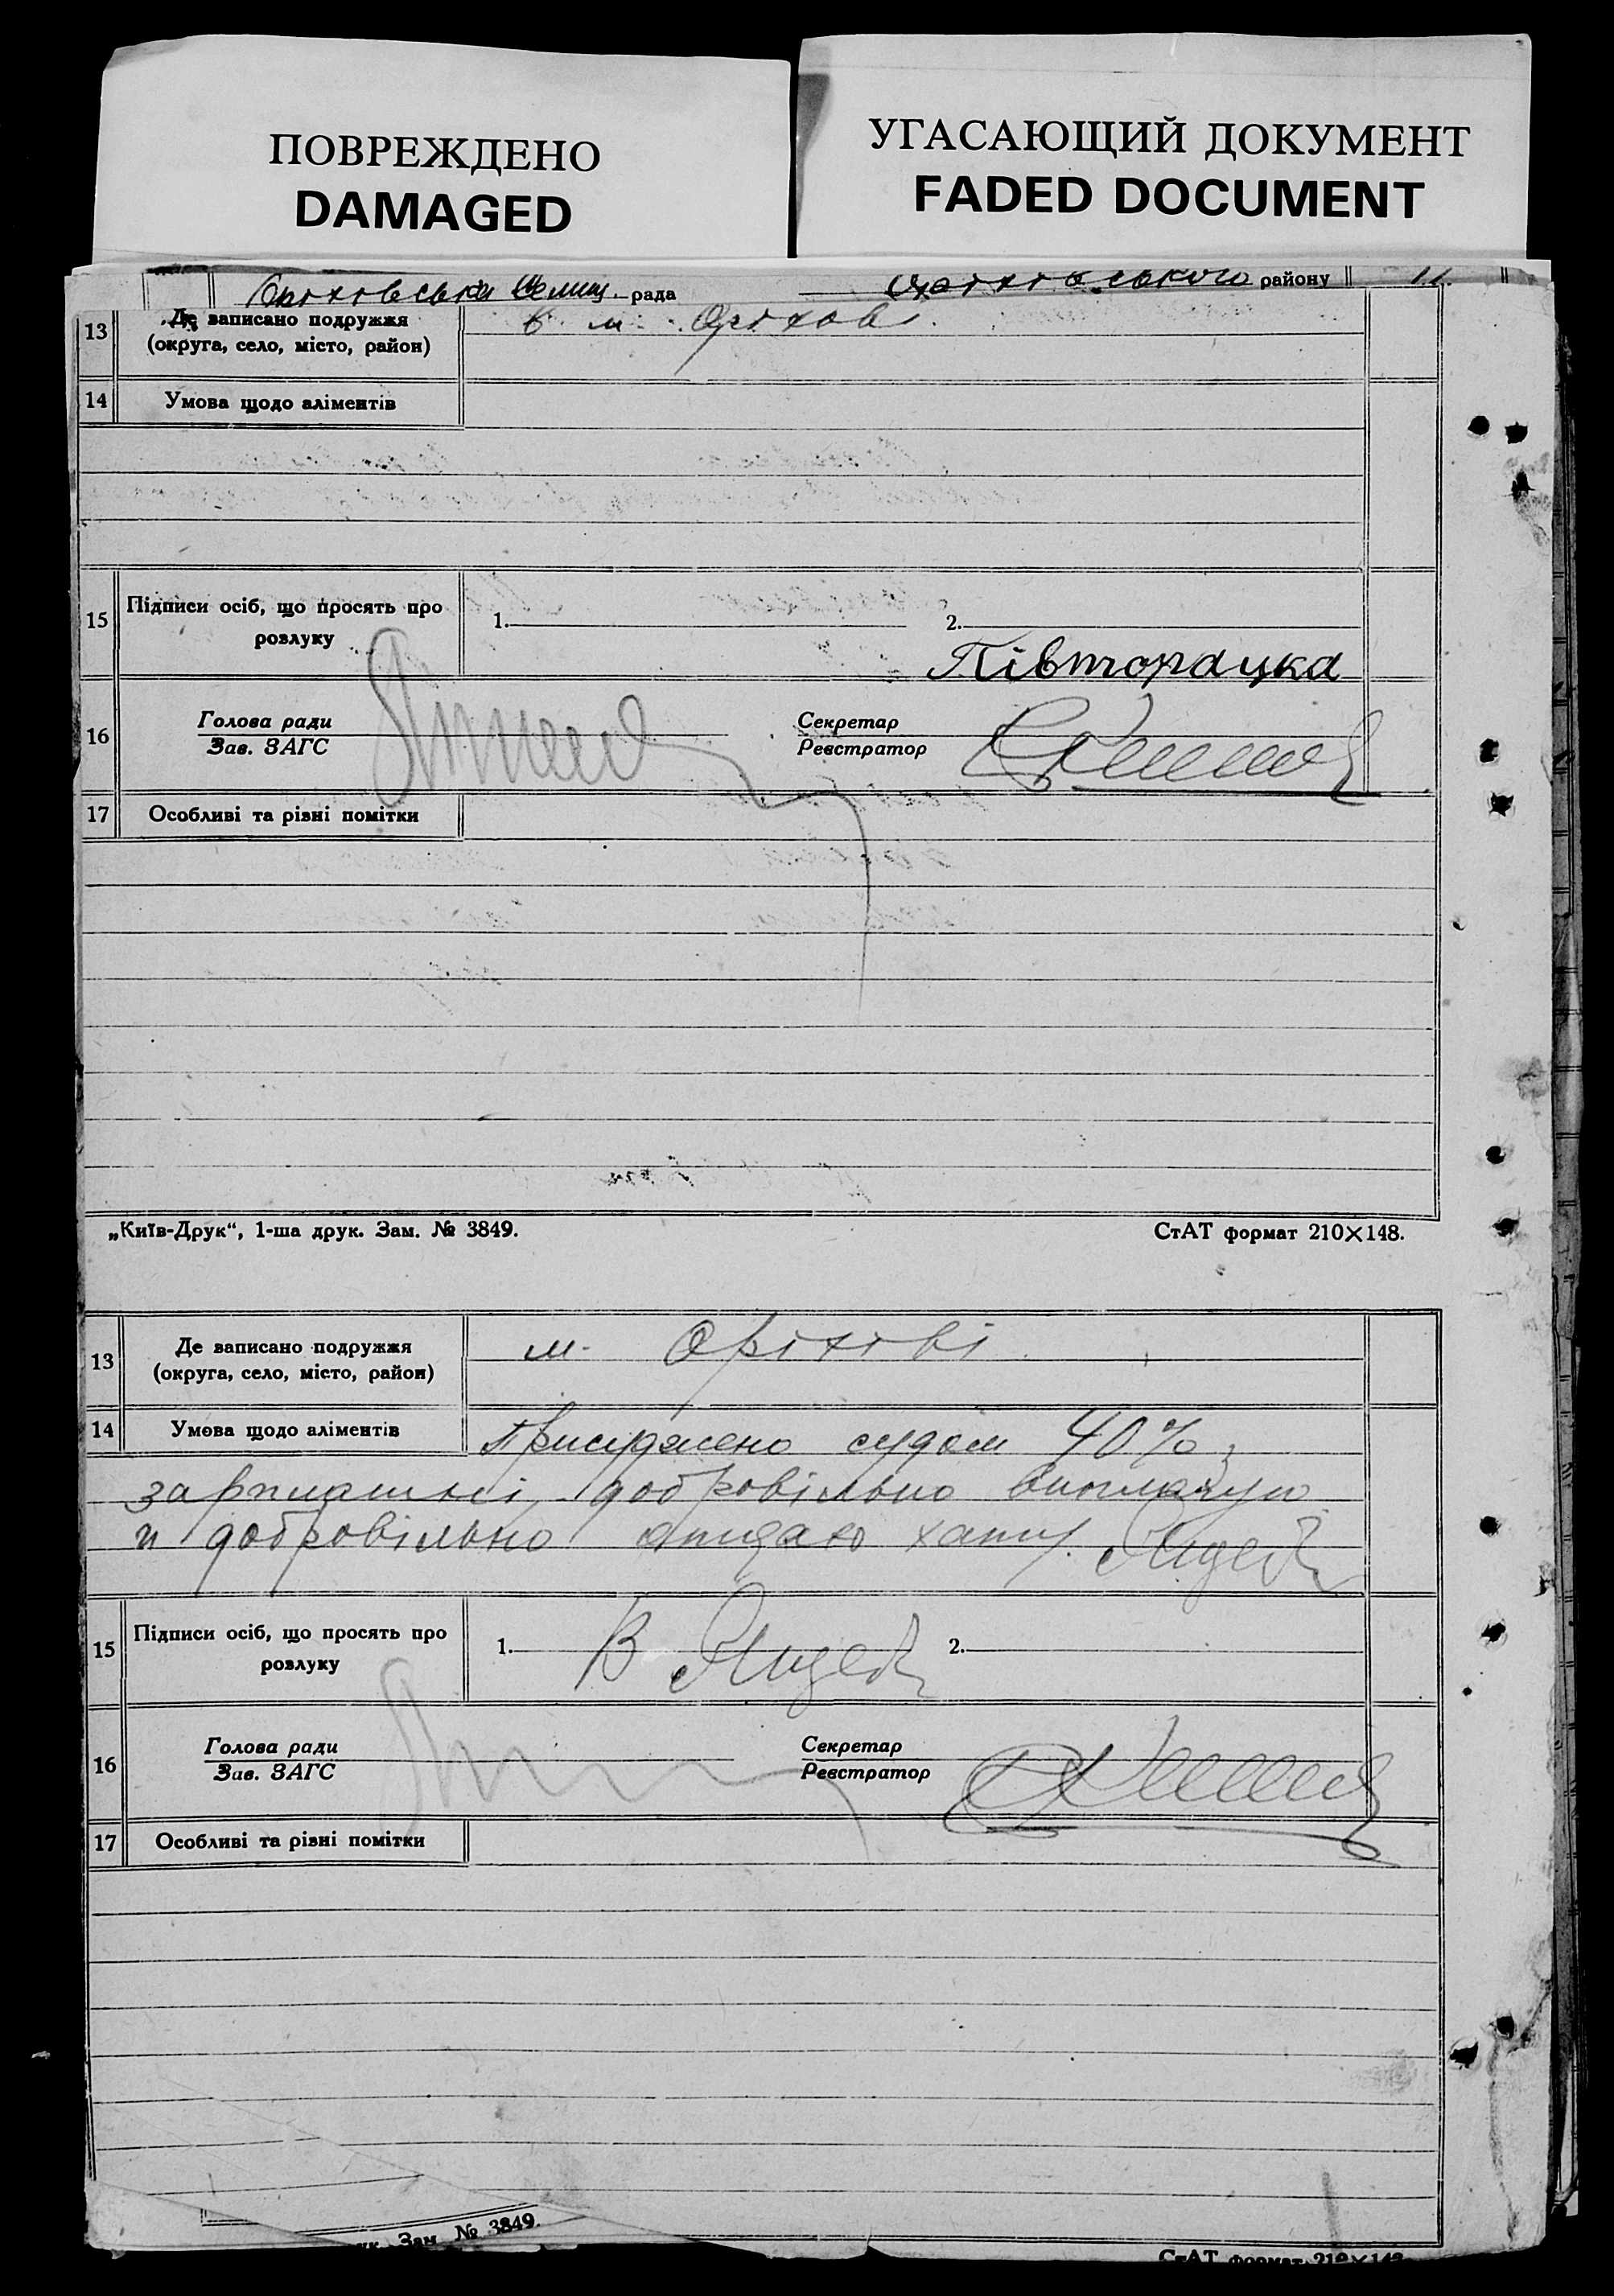 ПОВРЕЖДЕНО
DAMAGED
УГАСАЮЩИЙ ДОКУМЕНТ
FADED DOCUMENT
Оріховська Селищ. рада Оріхівського району
13 Де записано подружжя в м. Оріхові
(округа, село, місто, район)
14 Умова щодо аліментів
15 Підписи осіб, що просять про розлуку 1. 2.
Півторацка
16 Голова ради Секретар
Зав. ЗАГС Реєстратор
17 Особливі та рівні помітки
„Київ-Друк“, 1-ша друк. Зам. № 3849. СтАТ формат 210×148.
13 Де записано подружжя м. Оріхові
(округа, село, місто, район)
14 Умова щодо аліментів Присуджено судом 40%
зарплатні, добровільно виплачую
и добровільно оттдаю хату.
15 Підписи осіб, що просять про розлуку 1. В 2.
16 Голова ради Секретар
Зав. ЗАГС Реєстратор
17 Особливі та рівні помітки
Зам. № 3849.
СтАТ формат 210×148